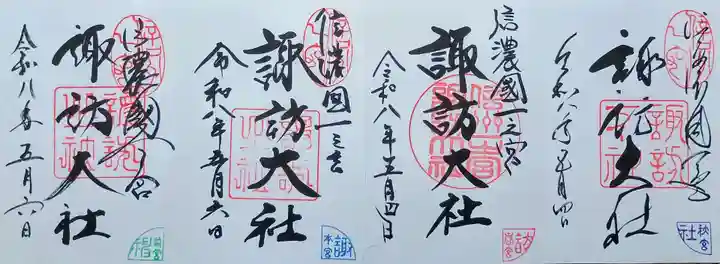 信濃國一之宮
諏訪大社
令和八年五月六日
信濃國一之宮
諏訪大社
令和八年五月六日
信濃國一之宮
諏訪大社
令和八年五月四日
信濃國一之宮
諏訪大社
令和八年五月四日
秋宮